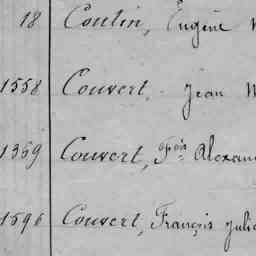 18 Coutin, Eugène
1558 Couvert, Jean
1359 Couvert, Fçois Alexan
1596 Couvert, François Julie